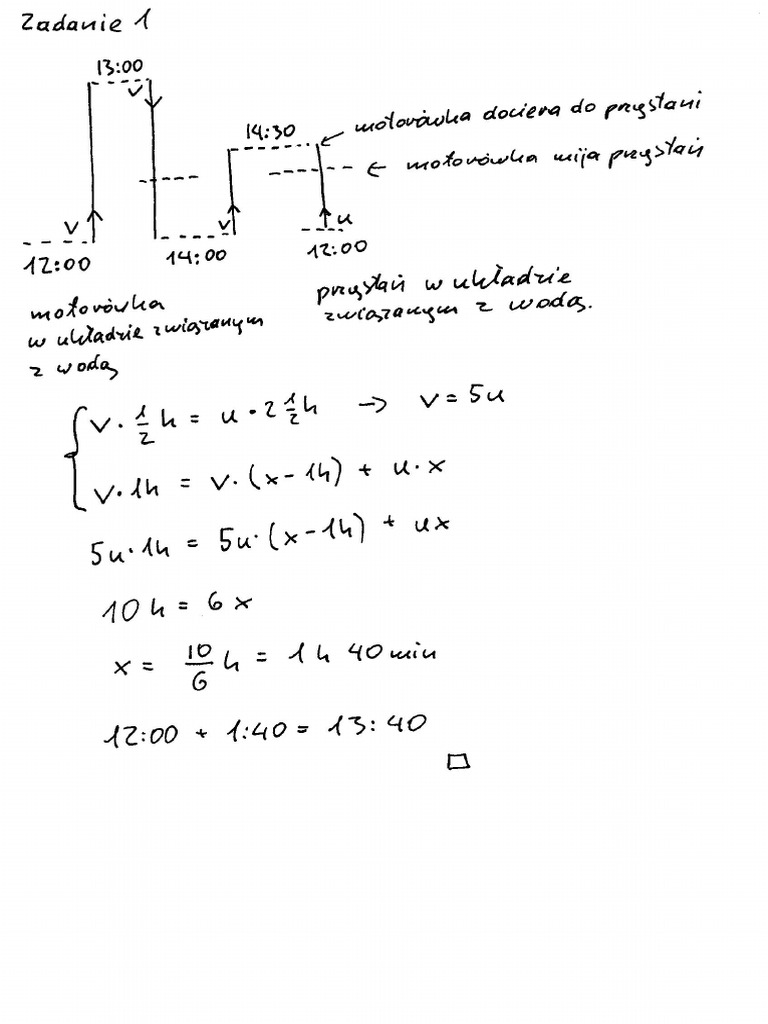 Zadanie 1
13:00
v
14:30
motorówka dociera do przystani
motorówka mija przystań
v
v
u
12:00
14:00
12:00
motorówka
w układzie związanym
z wodą
przystań w układzie
związanym z wodą.
v · 1/2 h = u · 2 1/2 h → v = 5u
v · 1h = v · (x - 1h) + u · x
5u · 1h = 5u · (x - 1h) + ux
10 h = 6 x
x = 10/6 h = 1 h 40 min
12:00 + 1:40 = 13:40